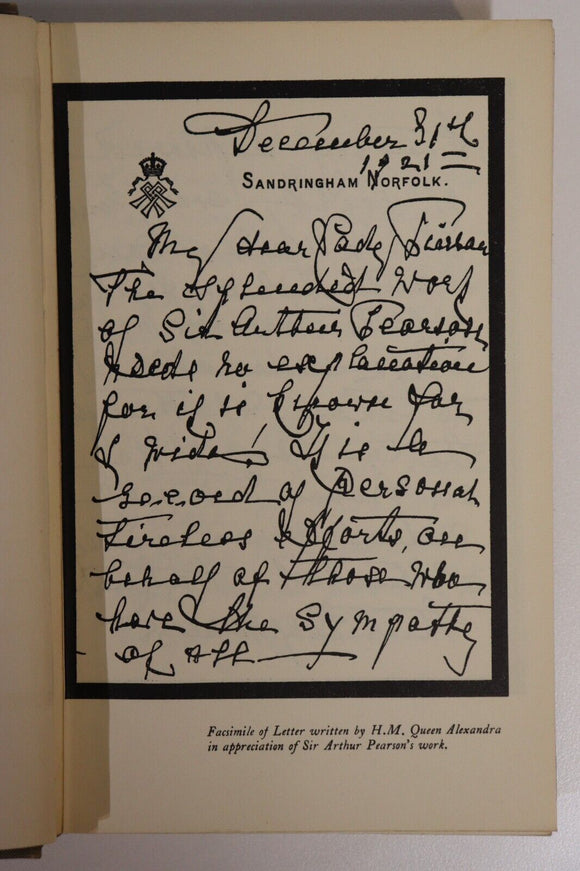 December 31st
1921
SANDRINGHAM NORFOLK.
My dear Lady Pearson
The splendid work
of Sir Arthur Pearson
needs no explanation
for it is known far
& wide, It is a
record of personal
tireless efforts, on
behalf of those who
have the sympathy
of all
Facsimile of Letter written by H.M. Queen Alexandra
in appreciation of Sir Arthur Pearson's work.